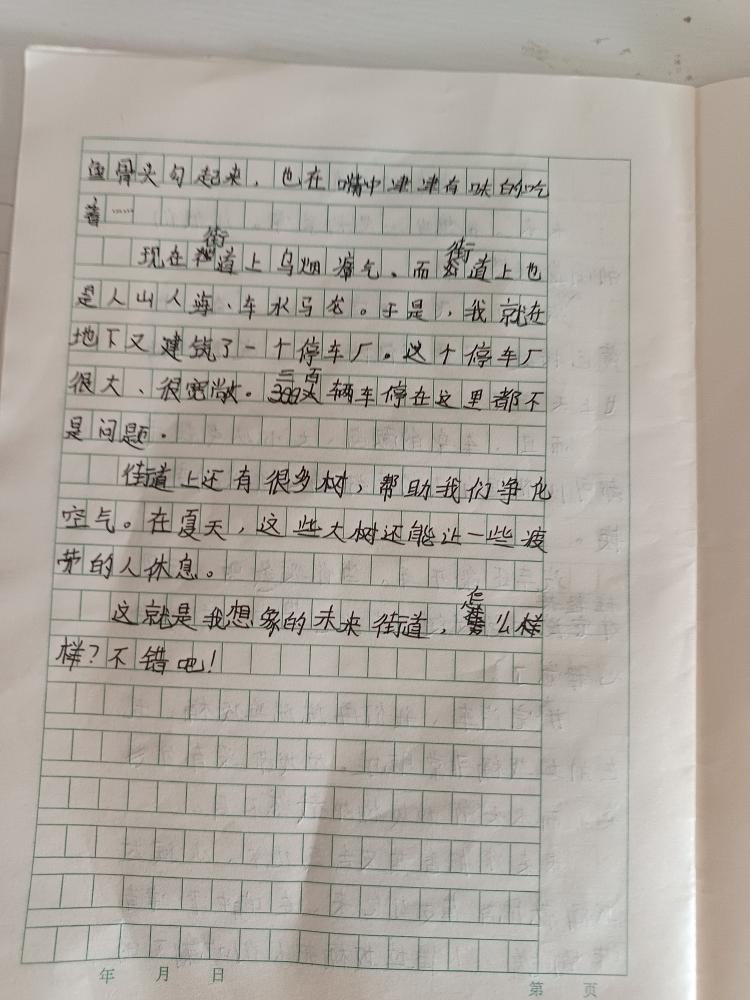 鱼骨头勾起来，也在嘴中津津有味的吃
着……
现在街道上乌烟瘴气。而街道上也
是人山人海、车水马龙。于是，我就在
地下又建筑了一个停车厂。这个停车厂
很大、很宽敞。三百辆车停在这里都不
是问题。
街道上还有很多树，帮助我们争化
空气。在夏天，这些大树还能让一些疲
劳的人休息。
这就是我想象的未来街道，怎么样
样？不错吧！
年 月 日
第 页